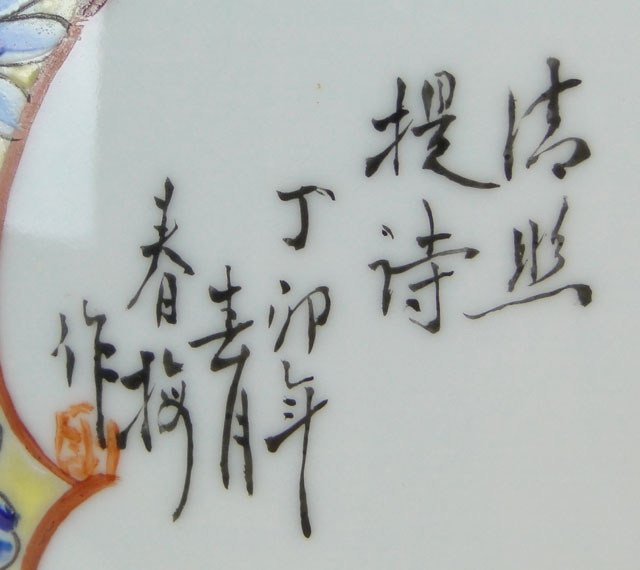 清照
提诗
丁卯年
春月
春梅
作